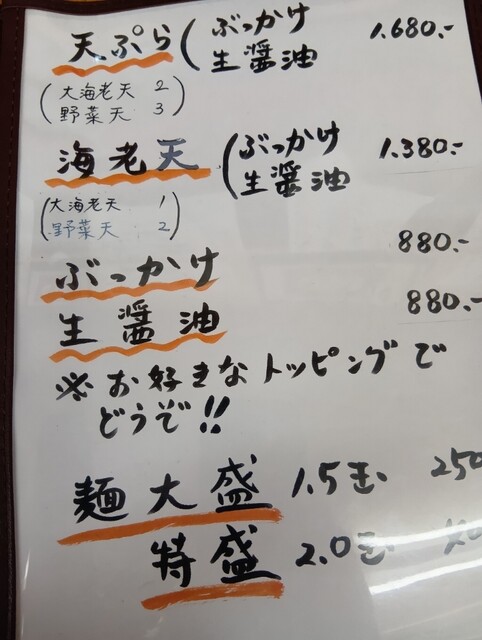 天ぷら ( ぶっかけ 1.680.-
生醤油
( 大海老天 2
野菜天 3 )
海老天 ( ぶっかけ 1.380.-
生醤油
( 大海老天 1
野菜天 2 )
ぶっかけ 880.-
生醤油 880.-
※お好きなトッピングで
どうぞ!!
麺大盛 1.5玉 250
特盛 2.0玉